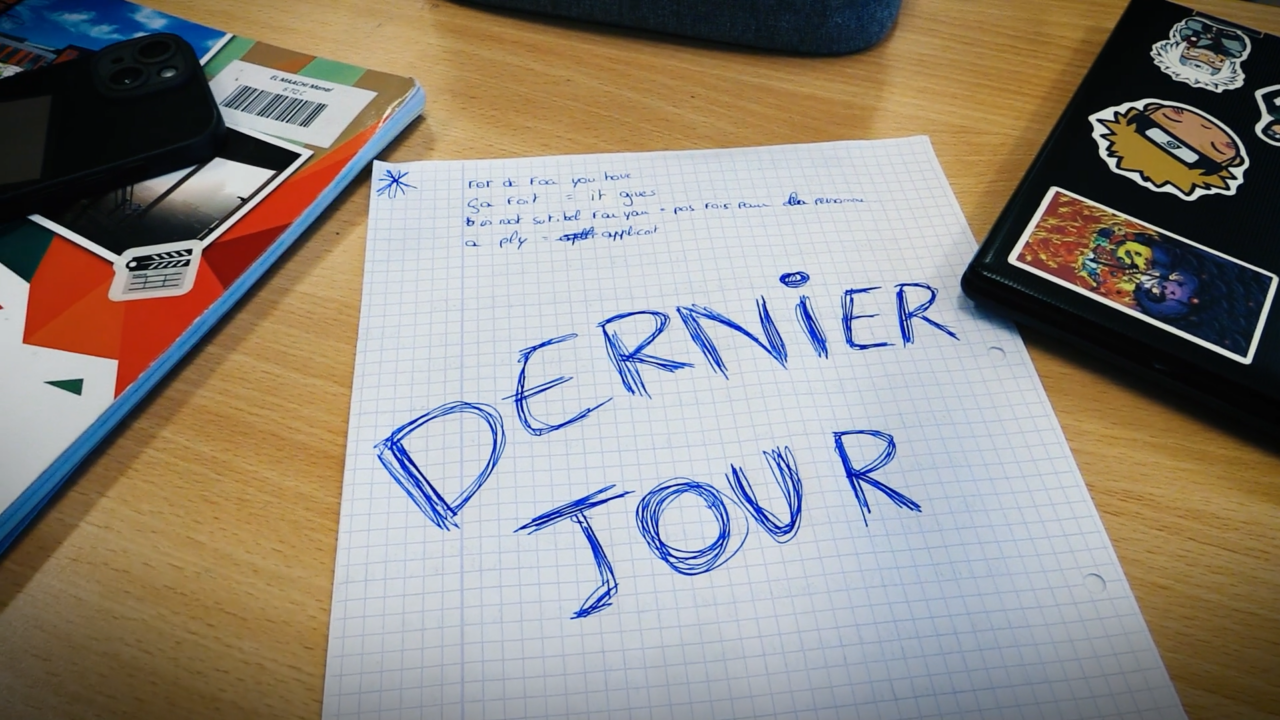 EL MAACHI Manel
6 TQ C
For de Foa you have
ça Fait = it gives
is not sutibel For you = pas Fais Pour la personne
a ply = applicait
DERNiER
JOUR